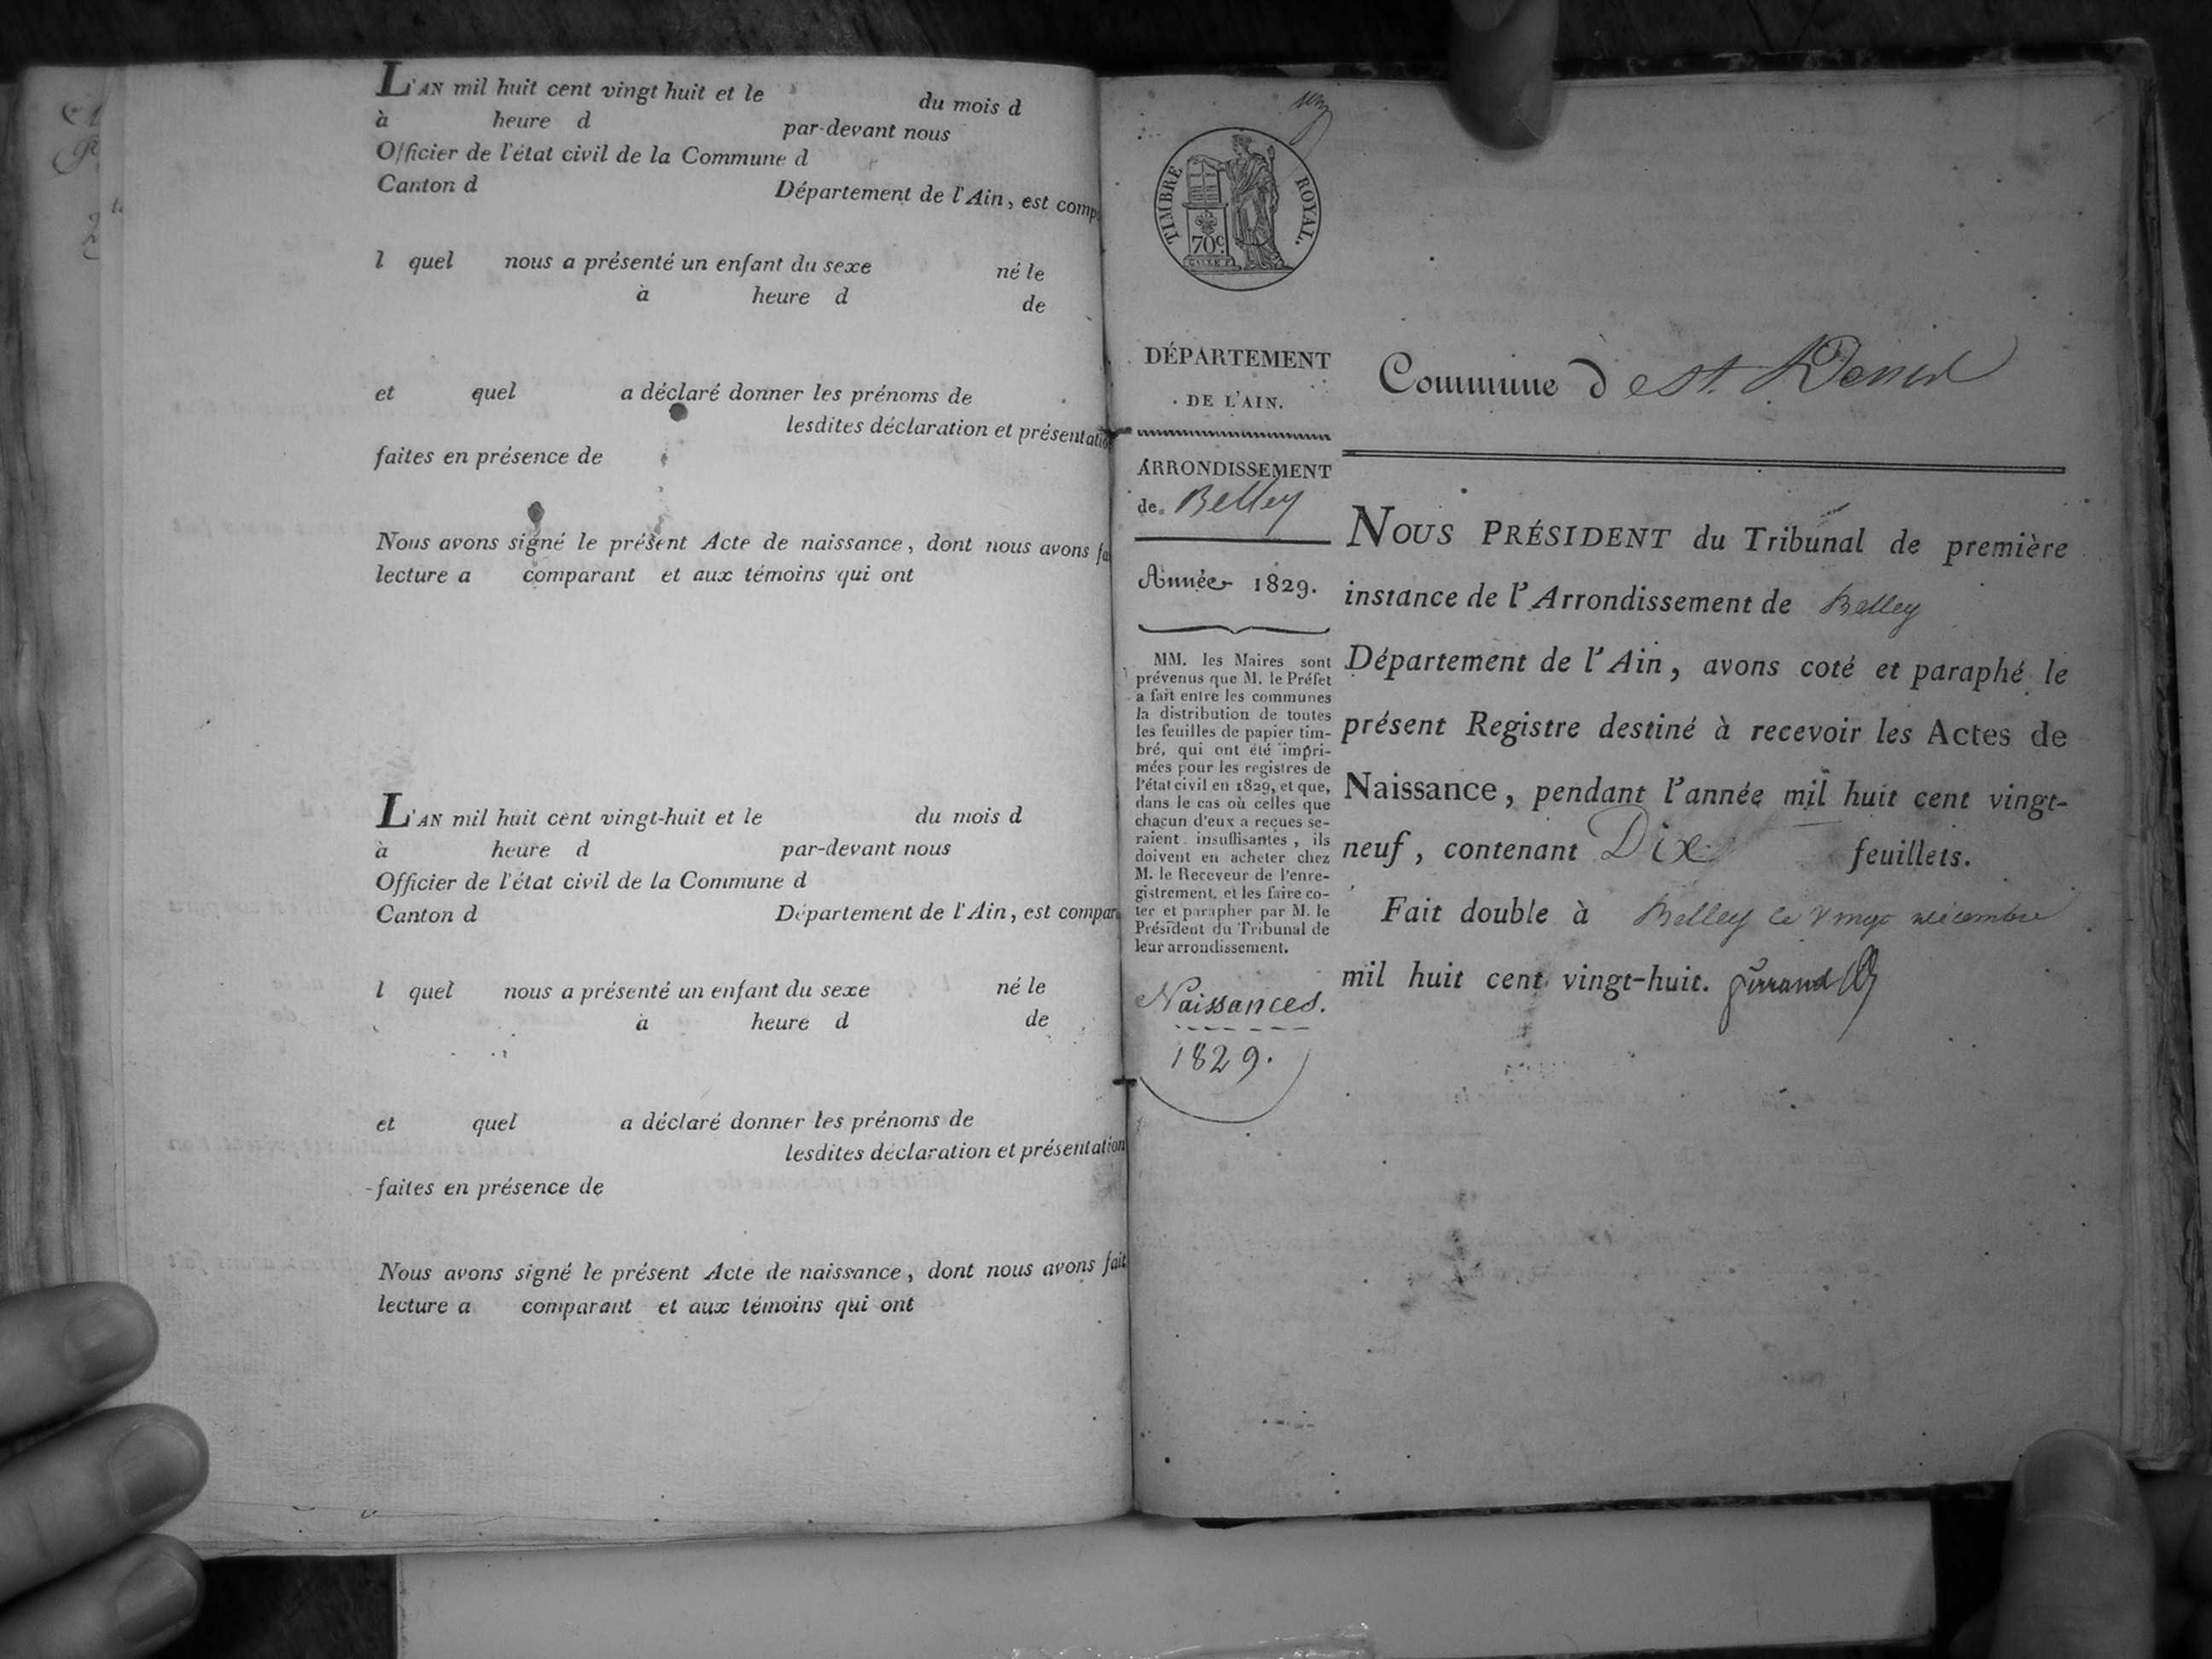 L'AN mil huit cent vingt huit et le du mois d
à heure d par-devant nous
Officier de l'état civil de la Commune d
Canton d Département de l'Ain, est comp
l quel nous a présenté un enfant du sexe né le
à heure d de
et quel a déclaré donner les prénoms de
lesdites déclaration et présentatio
faites en présence de
Nous avons signé le présent Acte de naissance, dont nous avons fa
lecture a comparant et aux témoins qui ont
L'AN mil huit cent vingt-huit et le du mois d
à heure d par-devant nous
Officier de l'état civil de la Commune d
Canton d Département de l'Ain, est compar
l quel nous a présenté un enfant du sexe né le
à heure d de
et quel a déclaré donner les prénoms de
lesdites déclaration et présentation
faites en présence de
Nous avons signé le présent Acte de naissance, dont nous avons fait
lecture a comparant et aux témoins qui ont
TIMBRE ROYAL.
70c.
DÉPARTEMENT
DE L'AIN.
ARRONDISSEMENT
de Belley
Année 1829.
MM. les Maires sont
prévenus que M. le Préfet
a fait entre les communes
la distribution de toutes
les feuilles de papier tim-
bré, qui ont été impri-
mées pour les registres de
l'état civil en 1829, et que,
dans le cas où celles que
chacun d'eux a reçues se-
raient insuffisantes, ils
doivent en acheter chez
M. le Receveur de l'enre-
gistrement, et les faire co-
ter et parapher par M. le
Président du Tribunal de
leur arrondissement.
Naissances.
1829.
Commune de St. Denis
NOUS PRÉSIDENT du Tribunal de première
instance de l'Arrondissement de Belley
Département de l'Ain, avons coté et paraphé le
présent Registre destiné à recevoir les Actes de
Naissance, pendant l'année mil huit cent vingt-
neuf, contenant Dix feuillets.
Fait double à Belley le vingt décembre
mil huit cent vingt-huit.